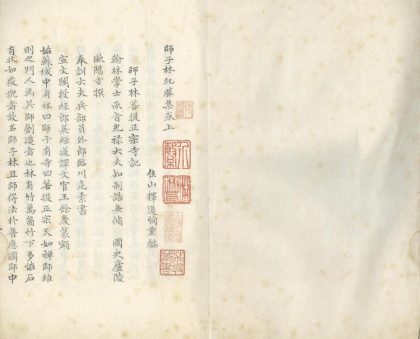 師子林紀勝集卷上
住山釋道恂重編
師子林菩提正宗寺記
翰林學士承旨光祿大夫知制誥兼脩 國史廬陵
歐陽玄撰
奉訓大夫兵部員外郎臨川危素書
宣文閣授經郎兼經筵譯文官王餘慶篆額
姑蘇城中有林曰師子有寺曰菩提正宗天如禪師維
則之門人為其師創造者也林有竹萬箇竹下多怪石
有狀如狻猊者故名師子林且師得法於普應國師中